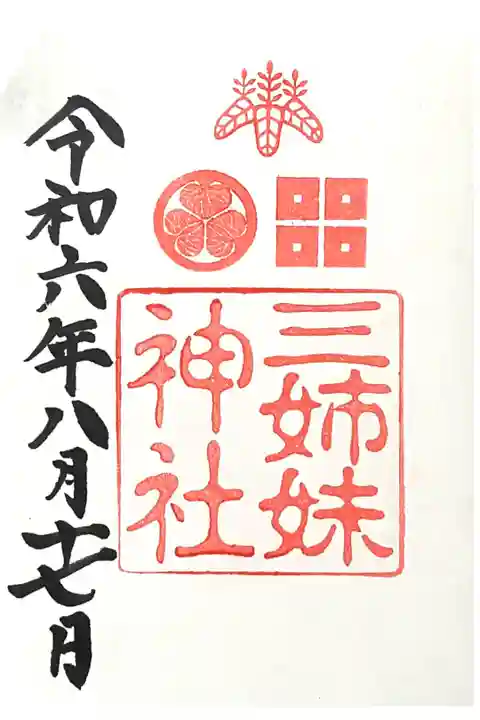 三姉妹
神社
令和六年八月十七月